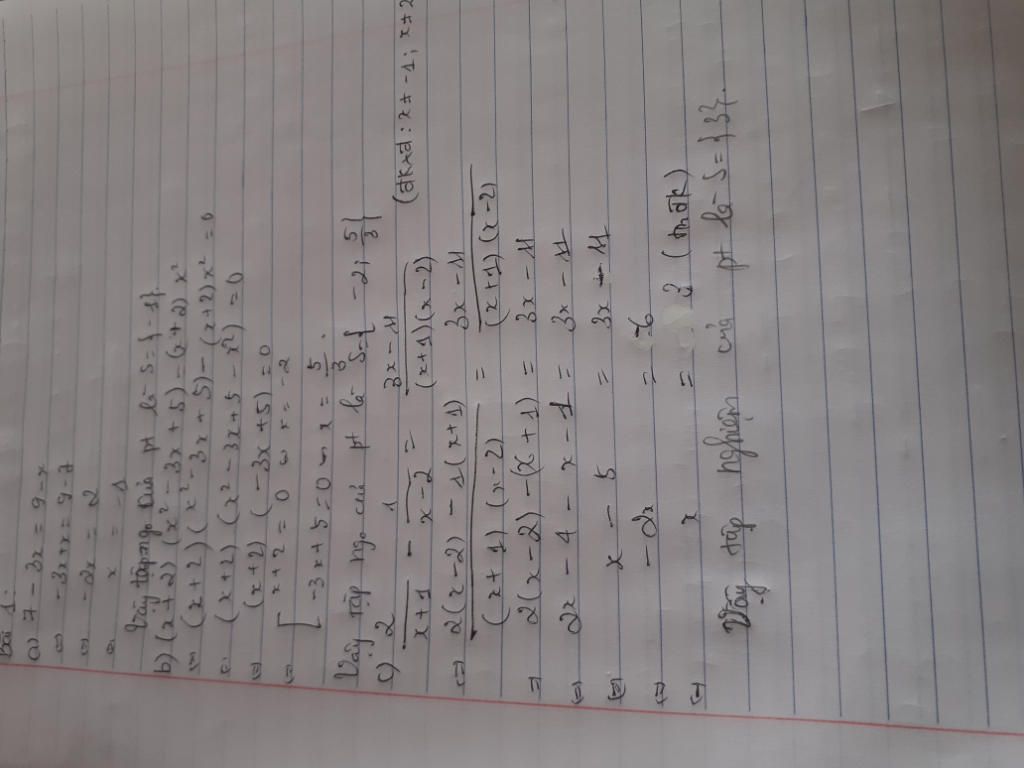 Bài 1:
a) 7 - 3x = 9 - x
⇔ -3x + x = 9 - 7
⇔ -2x = 2
⇔ x = -1
Vậy tập ngo của pt là S = {-1}.
b) (x+2)(x² - 3x + 5) = (x+2)x²
⇔ (x+2)(x² - 3x + 5) - (x+2)x² = 0
⇔ (x+2)(x² - 3x + 5 - x²) = 0
⇔ (x+2)(-3x + 5) = 0
⇔ [ x + 2 = 0 ⇔ x = -2
-3x + 5 = 0 ⇔ x = 5/3.
Vậy tập ngo của pt là S = {-2; 5/3}
c) 2/(x+1) - 1/(x-2) = (3x - 11)/((x+1)(x-2)) (đkxđ: x ≠ -1; x ≠ 2
⇔ (2(x-2) - 1(x+1))/((x+1)(x-2)) = (3x - 11)/((x+1)(x-2))
⇒ 2(x-2) - (x+1) = 3x - 11
⇔ 2x - 4 - x - 1 = 3x - 11
⇔ x - 5 = 3x - 11
⇔ -2x = -6
⇔ x = 3 (tmđk)
Vậy tập nghiệm của pt là S = {3}.